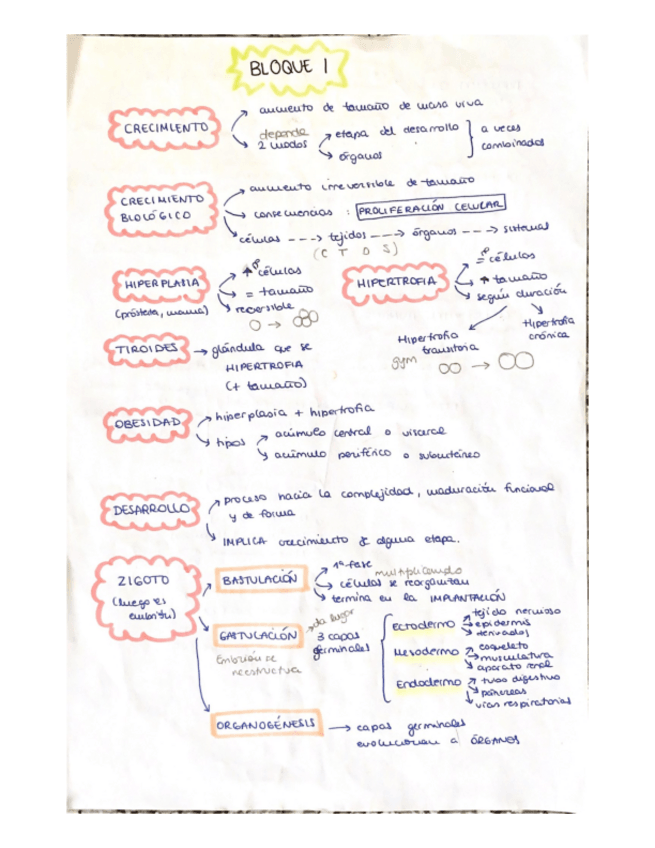 BLOQUE 1
CRECIMIENTO
aumento de tamaño de masa viva
depende
2 modos
etapa del desarrollo
órganos
a veces
combinados
CRECIMIENTO
BIOLÓGICO
aumento irreversible de tamaño
consecuencias : PROLIFERACIÓN CELULAR
células ---> tejidos ---> órganos ---> sistemas
(C T O S)
HIPERPLASIA
(próstata, mama)
↑ nº células
= tamaño
reversible
HIPERTROFIA
= nº células
↑ tamaño
según duración
Hipertrofia
transitoria
Hipertrofia
crónica
gym
TIROIDES → glándula que se
HIPERTROFIA
(+ tamaño)
OBESIDAD
hiperplasia + hipertrofia
tipos
acúmulo central o visceral
acúmulo periférico o subcutáneo
DESARROLLO
proceso hacia la complejidad, maduración funcional
y de forma
IMPLICA crecimiento de alguna etapa.
ZIGOTO
(luego es
embrión)
BASTULACIÓN
1ª fase
multiplicando
células se reorganizan
termina en la IMPLANTACIÓN
GASTULACIÓN
da lugar
3 capas
germinales
Embrión se
reestructura
Ectodermo
tejido nervioso
epidermis
derivados
Mesodermo
esqueleto
musculatura
aparato renal
Endodermo
tubo digestivo
páncreas
vías respiratorias
ORGANOGÉNESIS → capas germinales
evolucionan a ÓRGANOS